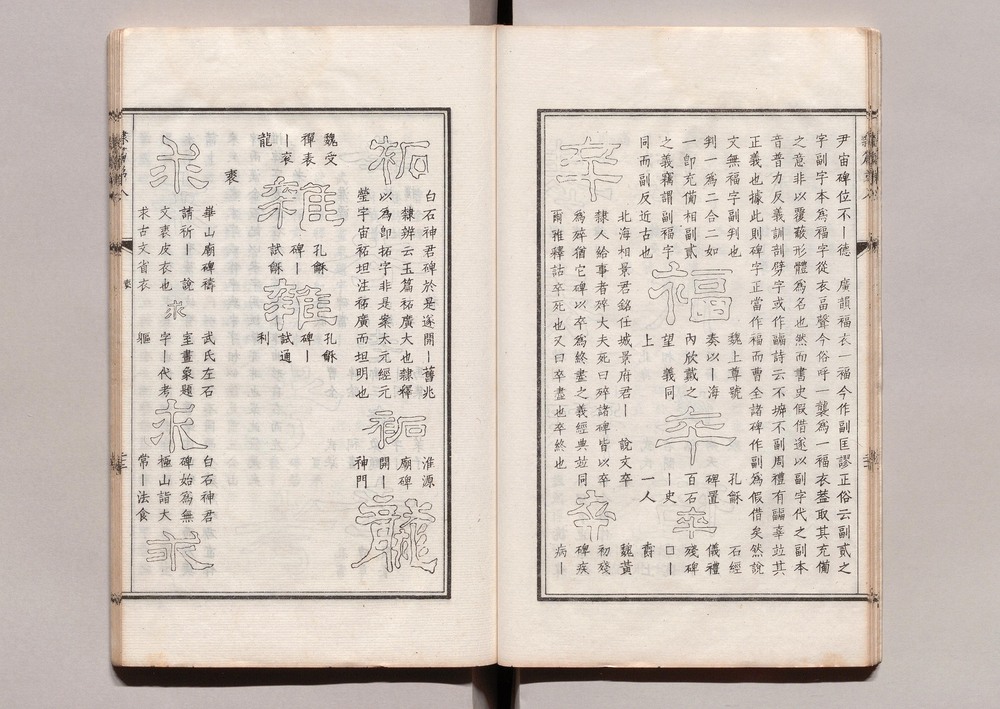 尹宙碑位不丨德　廣韻福衣一福今作副匡謬正俗云副貳之
字副字本為福字從衣畐聲今俗呼一襲為一福衣蓋取其充備
之意非以覆蔽形體為名也然而書史假借遂以副字代之副本
音普力反義訓剖劈字或作疈詩云不坼不副周禮有疈辜竝其
正義也據此則碑字正當作福而曹全諸碑作副為假借矣然說
文無福字副判也
判一為二合二如
一卽充備相副貳
之義竊謂副福字
同而副反近古也
福
魏上尊號
奏以丨海
內欣戴之
望　義同
上
卒
孔龢
碑置
百石
丨史
一人
卒
石經
儀禮
殘碑
口丨
卒
北海相景君銘任城景府君丨　說文卒
隸人給事者碎大夫死曰碎諸碑皆以卒
為碎猶它碑以卒為終盡之義經典並同
爾雅釋詁卒死也又曰卒盡也卒終也
卒
魏黃
初殘
碑疾
病丨
袥
白石神君碑於是遂開丨舊兆
隸辨云玉篇袥廣大也隸釋
以為卽拓字非是案太元經元
瑩宇宙袥坦注袥廣而坦明也
袥
淮源
廟碑
開丨
神門
襲
魏受
禪表
丨衮
龍
雜
孔龢
碑丨
試龢
雜
孔龢
碑丨
試通
利
裘
求
華山廟碑禱
請祈丨　說
文裘皮衣也
求古文省衣
求
武氏左石
室畫象題
字丨代考
軀
求
白石神君
碑始為無
極山詣大
常丨法食
求